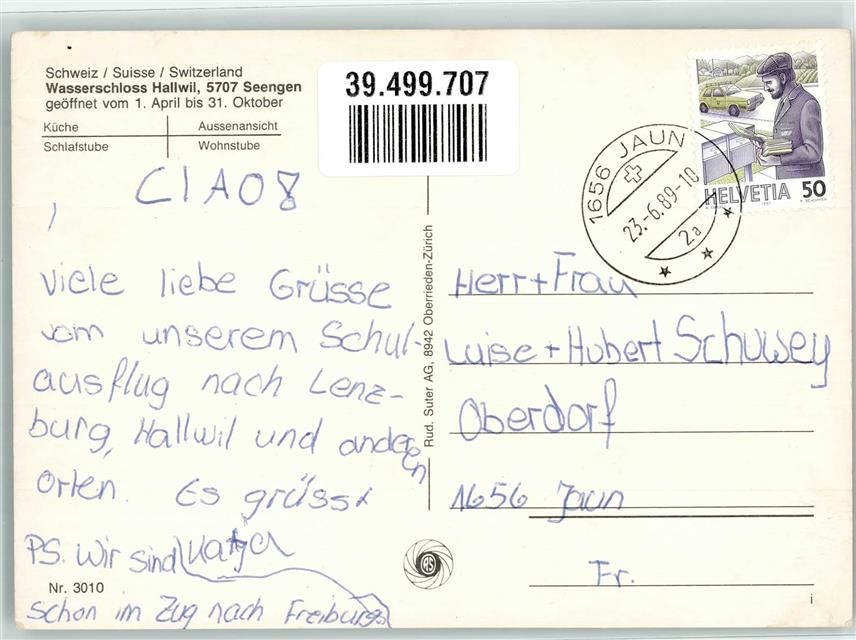 Schweiz / Suisse / Switzerland
Wasserschloss Hallwil, 5707 Seengen
geöffnet vom 1. April bis 31. Oktober
Küche Aussenansicht
Schlafstube Wohnstube
39.499.707
1656 JAUN
23.-6.89-10
2a
HELVETIA 50
CIAO
Viele liebe Grüsse
vom unserem Schul-
ausflug nach Lenz-
burg, Hallwil und anderen
orten. Es grüsst
Katja
PS. Wir sind
schon im Zug nach Freiburg
Nr. 3010
Rud. Suter AG, 8942 Oberrieden-Zürich
Herr + Frau
Luise + Hubert Schuwey
Oberdorf
1656 Jaun
Fr.
RS
i